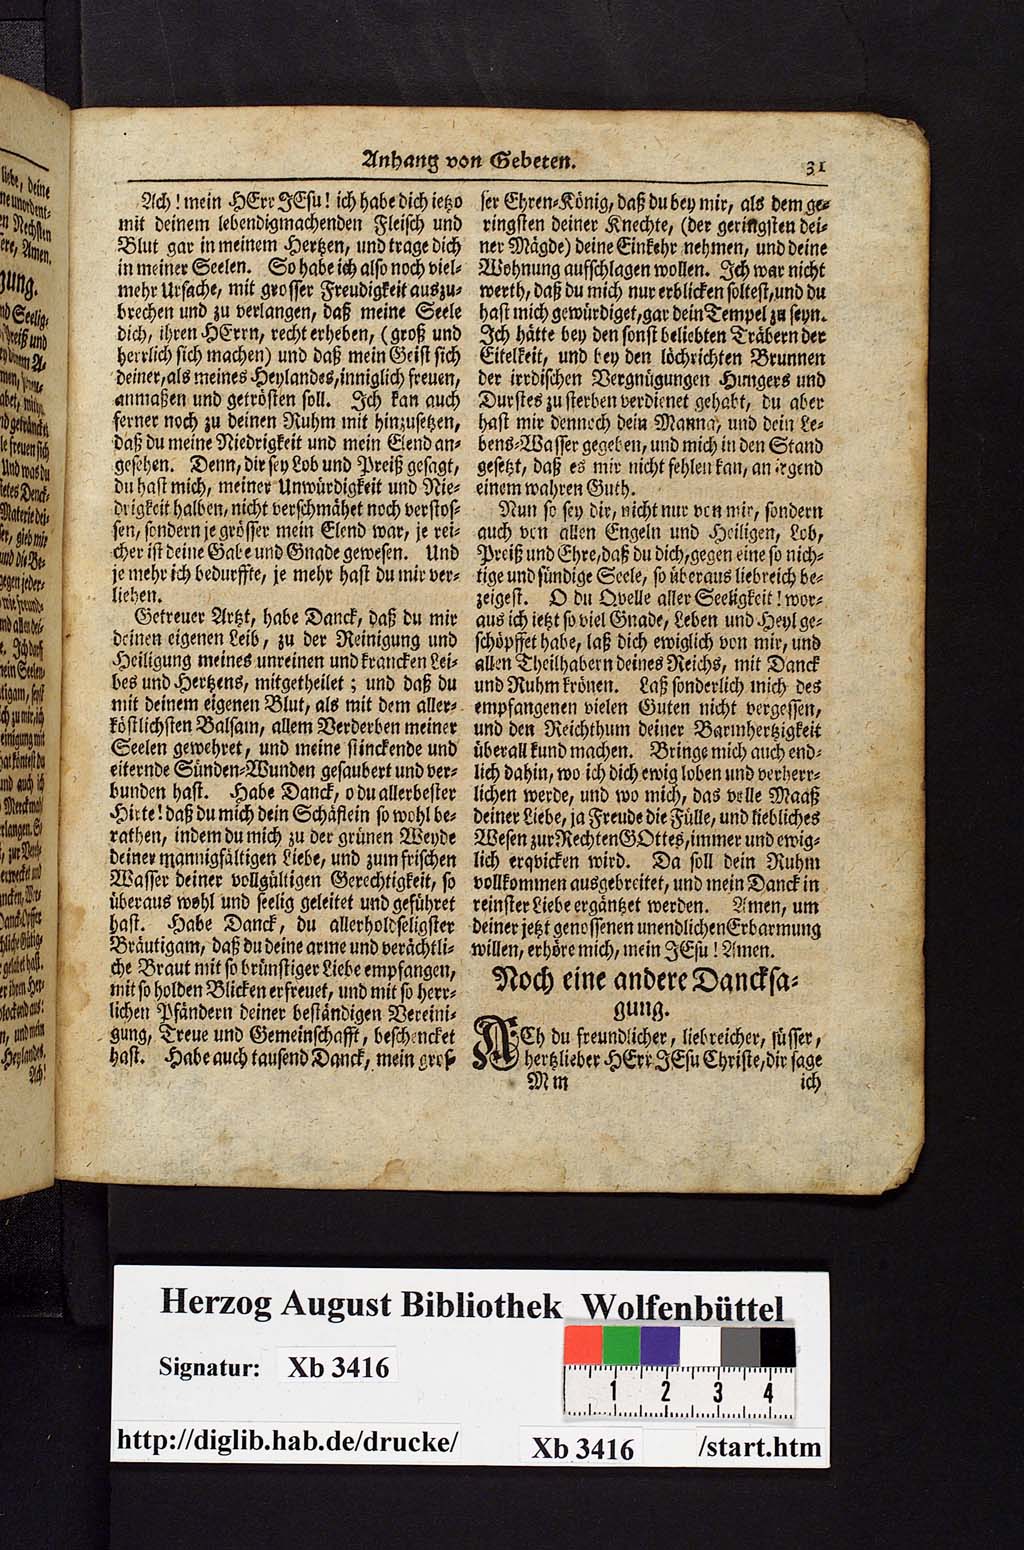 Anhang von Gebeten.
31
Ach! mein HErr JEsu! ich habe dich ietzo
mit deinem lebendigmachenden Fleisch und
Blut gar in meinem Hertzen, und trage dich
in meiner Seelen. So habe ich also noch viel-
mehr Ursache, mit grosser Freudigkeit auszu-
brechen und zu verlangen, daß meine Seele
dich, ihren HErrn, recht erheben, (groß und
herrlich sich machen) und daß mein Geist sich
deiner, als meines Heylandes, inniglich freuen,
anmaßen und getrösten soll. Ich kan auch
ferner noch zu deinen Ruhm mit hinzusetzen,
daß du meine Niedrigkeit und mein Elend an-
gesehen. Denn, dir sey Lob und Preiß gesagt,
du hast mich, meiner Unwürdigkeit und Nie-
drigkeit halben, nicht verschmähet noch verstos-
sen, sondern je grösser mein Elend war, je rei-
cher ist deine Gabe und Gnade gewesen. Und
je mehr ich bedurffte, je mehr hast du mir ver-
liehen.
Getreuer Artzt, habe Danck, daß du mir
deinen eigenen Leib, zu der Reinigung und
Heiligung meines unreinen und krancken Lei-
bes und Hertzens, mitgetheilet; und daß du
mit deinem eigenen Blut, als mit dem aller-
köstlichsten Balsam, allem Verderben meiner
Seelen gewehret, und meine stinckende und
eiternde Sünden-Wunden gesaubert und ver-
bunden hast. Habe Danck, o du allerbester
Hirte! daß du mich dein Schäflein so wohl be-
rathen, indem du mich zu der grünen Weyde
deiner mannigfältigen Liebe, und zum frischen
Wasser deiner vollgültigen Gerechtigkeit, so
überaus wohl und seelig geleitet und geführet
hast. Habe Danck, du allerholdseligster
Bräutigam, daß du deine arme und verächtli-
che Braut mit so brünstiger Liebe empfangen,
mit so holden Blicken erfreuet, und mit so herr-
lichen Pfändern deiner beständigen Vereini-
gung, Treue und Gemeinschafft, beschencket
hast. Habe auch tausend Danck, mein gros-
ser Ehren-König, daß du bey mir, als dem ge-
ringsten deiner Knechte, (der geringsten dei-
ner Mägde) deine Einkehr nehmen, und deine
Wohnung aufschlagen wollen. Ich war nicht
werth, daß du mich nur erblicken soltest, und du
hast mich gewürdiget, gar dein Tempel zu seyn.
Ich hätte bey den sonst beliebten Träbern der
Eitelkeit, und bey den löchrichten Brunnen
der irrdischen Vergnügungen Hungers und
Durstes zu sterben verdienet gehabt, du aber
hast mir dennoch dein Manna, und dein Le-
bens-Wasser gegeben, und mich in den Stand
gesetzt, daß es mir nicht fehlen kan, an irgend
einem wahren Guth.
Nun so sey dir, nicht nur von mir, sondern
auch von allen Engeln und Heiligen, Lob,
Preiß und Ehre, daß du dich, gegen eine so nich-
tige und sündige Seele, so überaus liebreich be-
zeigest. O du Qvelle aller Seeligkeit! wor-
aus ich jetzt so viel Gnade, Leben und Heyl ge-
schöpffet habe, laß dich ewiglich von mir, und
allen Theilhabern deines Reichs, mit Danck
und Ruhm krönen. Laß sonderlich mich des
empfangenen vielen Guten nicht vergessen,
und den Reichthum deiner Barmhertzigkeit
überall kund machen. Bringe mich auch end-
lich dahin, wo ich dich ewig loben und verherr-
lichen werde, und wo mich, das volle Maaß
deiner Liebe, ja Freude die Fülle, und liebliches
Wesen zur Rechten GOttes, immer und ewig-
lich erqvicken wird. Da soll dein Ruhm
vollkommen ausgebreitet, und mein Danck in
reinster Liebe ergäntzet werden. Amen, um
deiner jetzt genossenen unendlichen Erbarmung
willen, erhöre mich, mein JEsu! Amen.
Noch eine andere Dancksa-
gung.
ACh du freundlicher, liebreicher, süsser,
hertzlieber HErr JEsu Christe, dir sage
M m
ich
Herzog August Bibliothek Wolfenbüttel
Signatur: Xb 3416
1 2 3 4
http://diglib.hab.de/drucke/ Xb 3416 /start.htm